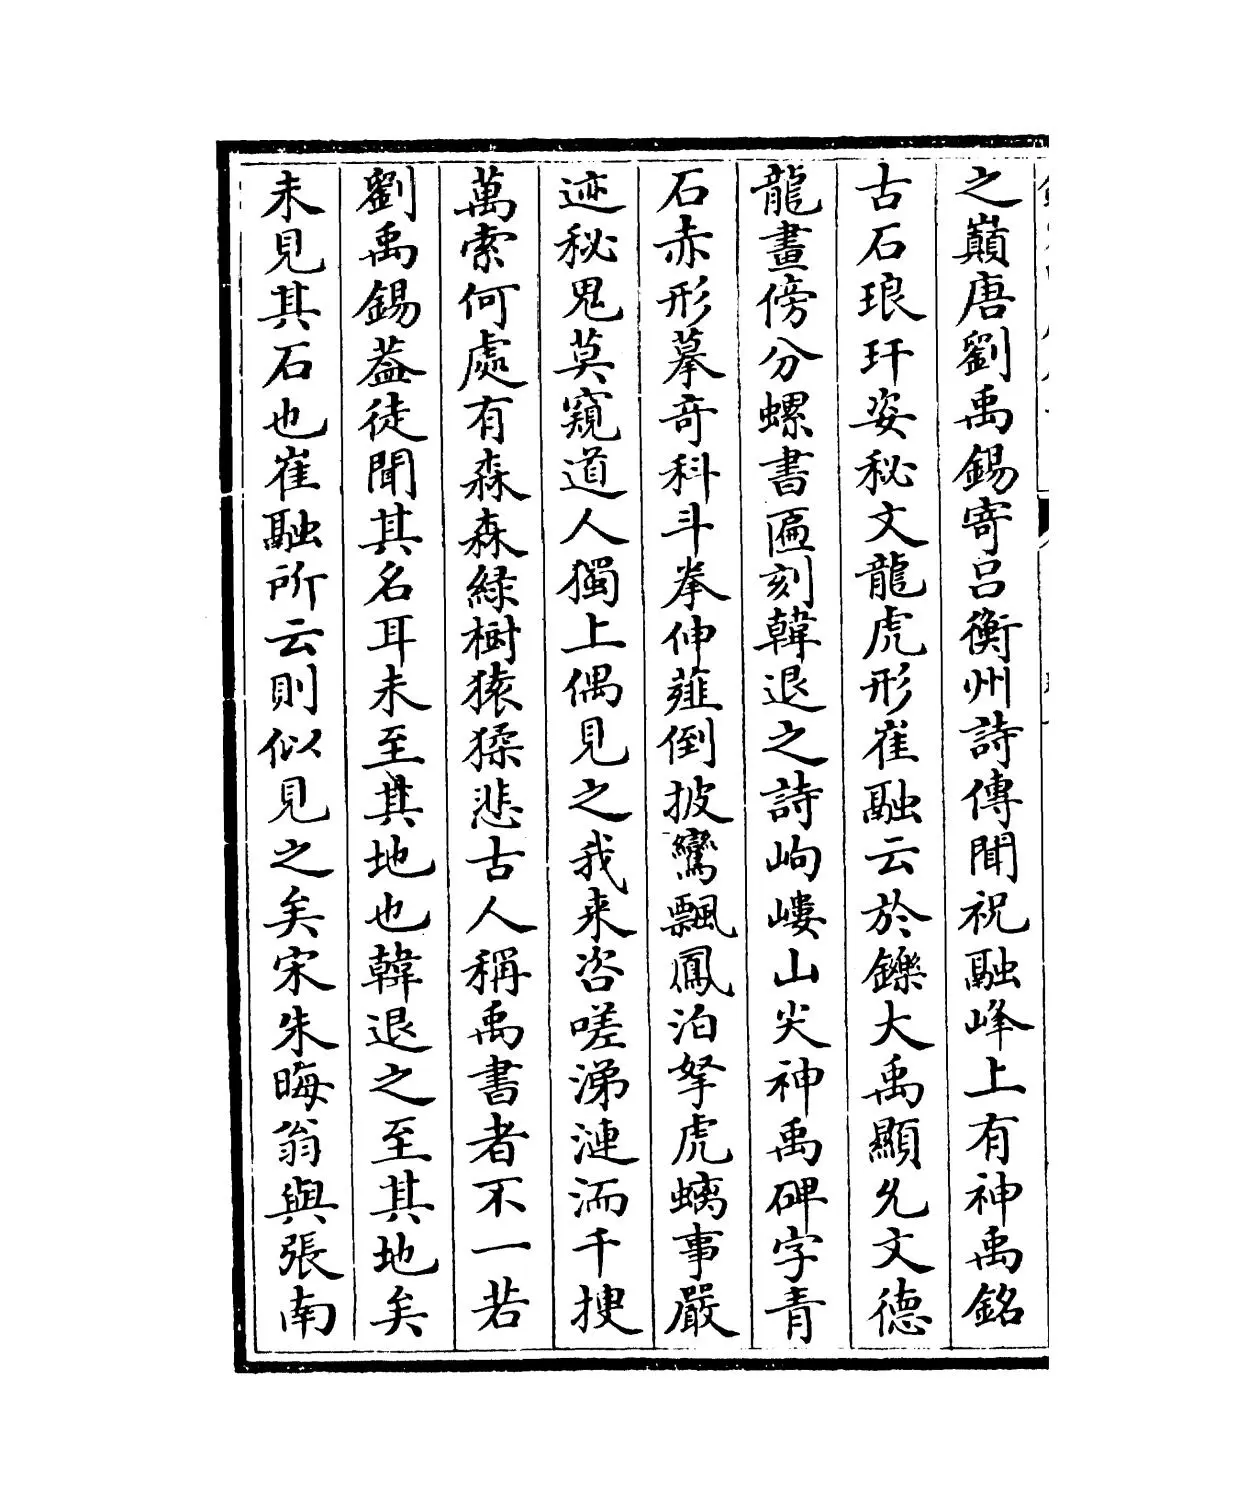 之巔唐劉禹錫寄吕衡州詩傳聞祝融峰上有神禹銘
古石琅玕姿秘文龍虎形崔融云於鑠大禹顯允文德
龍畫傍分螺書匾刻韓退之詩岣嶁山尖神禹碑字青
石赤形摹竒科斗拳伸薤倒披鸞飄鳳泊拏虎螭事嚴
迹秘鬼莫窺道人獨上偶見之我来咨嗟涕漣洏千搜
萬索何處有森森緑樹猿猱悲古人稱禹書者不一若
劉禹錫葢徒聞其名耳未至其地也韓退之至其地矣
未見其石也崔融所云則似見之矣宋朱晦翁與張南